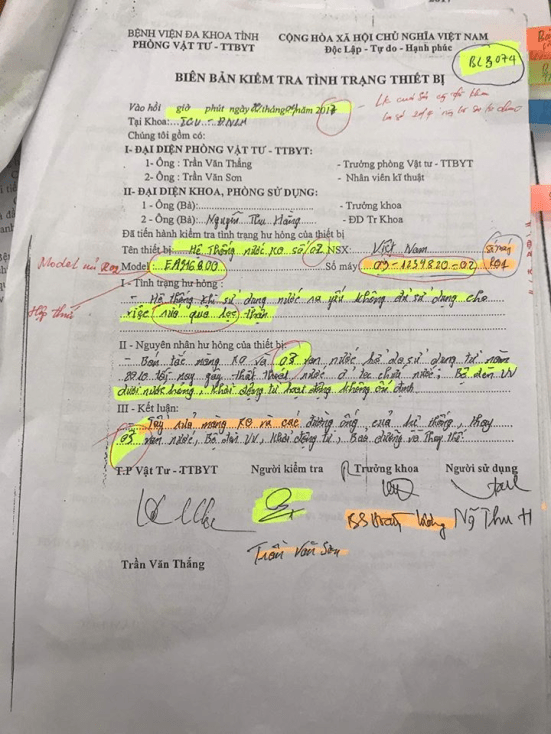 BỆNH VIỆN ĐA KHOA TỈNH
PHÒNG VẬT TƯ - TTBYT
CỘNG HÒA XÃ HỘI CHỦ NGHĨA VIỆT NAM
Độc Lập - Tự do - Hạnh phúc
BLB 074
BIÊN BẢN KIỂM TRA TÌNH TRẠNG THIẾT BỊ
Vào hồi giờ phút ngày tháng năm 2017
Tại Khoa: ICU - ĐNLM
Chúng tôi gồm có:
I- ĐẠI DIỆN PHÒNG VẬT TƯ - TTBYT:
1- Ông : Trần Văn Thắng - Trưởng phòng Vật tư - TTBYT
2- Ông : Trần Văn Sơn - Nhân viên kĩ thuật
II- ĐẠI DIỆN KHOA, PHÒNG SỬ DỤNG:
1 - Ông (Bà): - Trưởng khoa
2 - Ông (Bà): Nguyễn Thu Hằng - ĐD Tr Khoa
Đã tiến hành kiểm tra tình trạng hư hỏng của thiết bị
Tên thiết bị: Hệ thống nước RO số 02 NSX: Việt Nam
Model Model: Số máy: 03-1234820-02
I - Tình trạng hư hỏng :
- Hệ thống khi sử dụng nước ra yếu không đủ sử dụng cho
việc rửa quả lọc thận
II - Nguyên nhân hư hỏng của thiết bị:
- Bán tắc màng RO và 03 van nước hỏng do sử dụng từ năm
2010 tới nay gây thất thoát nước ở téc chứa nước, Bộ đèn UV
dưới nước hỏng, khởi động từ hoạt động không ổn định
III - Kết luận:
Tẩy rửa màng RO và các đường ống của hệ thống, thay
03 van nước, Bộ đèn UV, khởi động từ, Bảo dưỡng và thay thế
T.P Vật Tư - TTBYT Người kiểm tra Trưởng khoa Người sử dụng
Ng Thu H
Trần Văn Sơn
Trần Văn Thắng